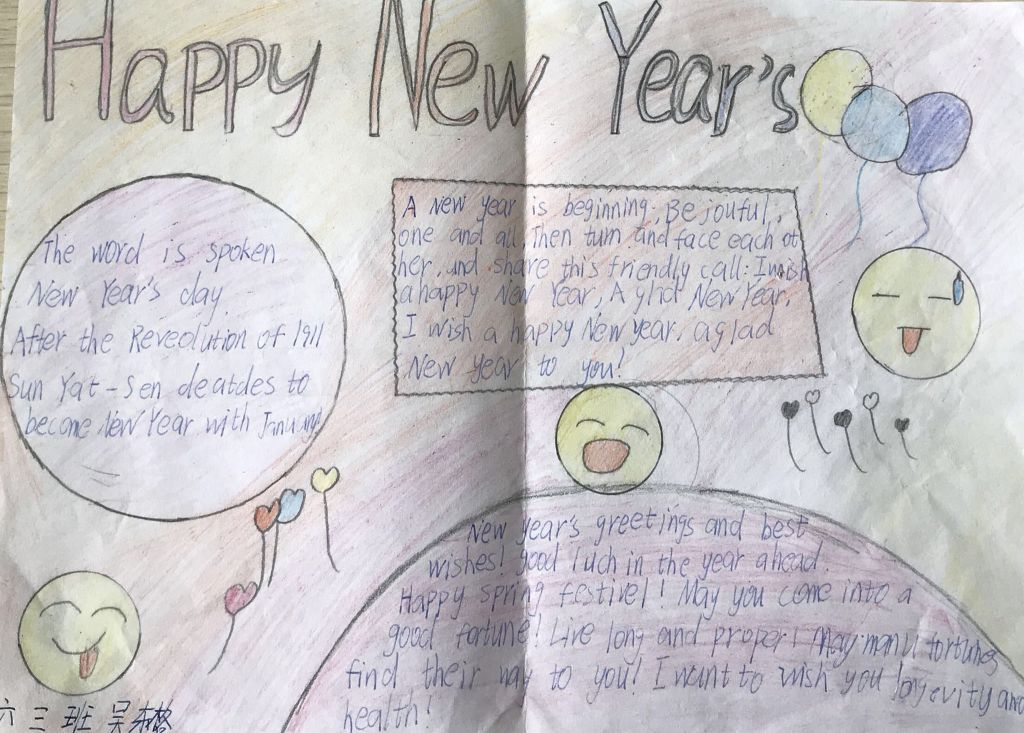 Happy New Year's
The word is spoken
New Year's day
After the Reveolution of 1911
Sun Yat-Sen deatdes to
become New Year with January
A New year is beginning; Be jouful,
one and all, Then turn and face each ot
her, und share this friendly call: I wish
a happy New Year, A glad New Year,
I wish a happy New year, a glad
New year to you!
New year's greetings and best
wishes! good luch in the year ahead.
Happy spring festivel! May you come into a
good fortune! Live long and proper! May manu fortunes
find their way to you! I want to wish you longevity and
health!
六三班 吴